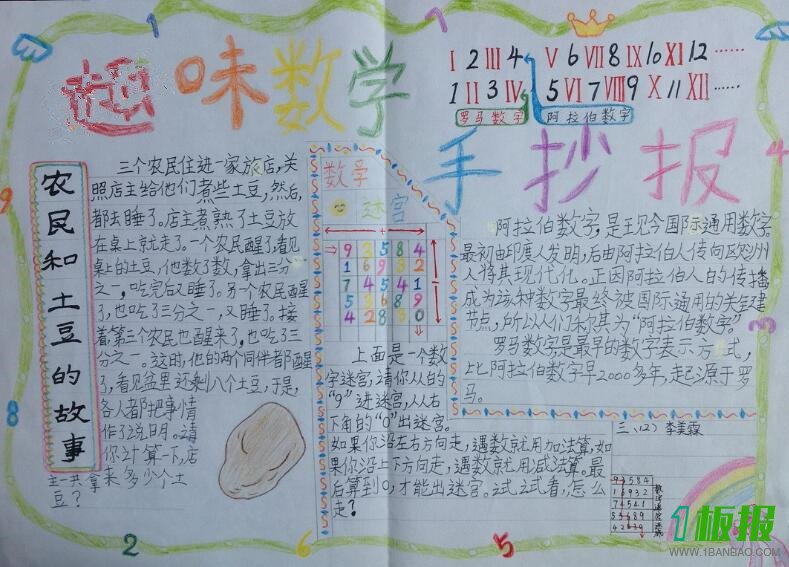 趣味数学
手抄报
I 2 III 4 V 6 VII 8 IX 10 XI 12 ……
1 II 3 IV 5 VI 7 VIII 9 X 11 XII ……
罗马数字 阿拉伯数字
农民和土豆的故事
三个农民住进一家旅店,关
照店主给他们煮些土豆,然后,
都去睡了。店主煮熟了土豆放
在桌上就走了。一个农民醒了,看见
桌上的土豆,他数了数,拿出三分
之一,吃完后又睡了。另一个农民醒
了,也吃了三分之一,又睡了。接
着第三个农民也醒来了,也吃了三
分之一。这时,他的两个同伴都醒
了,看见盆里还剩八个土豆,于是,
各人都把事情
作了说明。请
你计算一下,店
主一共拿来多少个土
豆?
数学
迷宫
9 3 5 8 4
1 6 9 3 2
7 4 5 4 1
5 3 6 8 9
4 2 8 3 0
上面是一个数
字迷宫,请你从的
"9"进迷宫,从右
下角的"0"出迷宫。
如果你沿左右方向走,遇数就用加法算,如
果你沿上下方向走,遇数就用减法算。最
后算到0,才能出迷宫。试试看,怎么
走?
阿拉伯数字,是现今国际通用数字
最初由印度人发明,后由阿拉伯人传向欧洲
人将其现代化。正因阿拉伯人的传播
成为该种数字最终被国际通用的关键
节点,所以人们称其为"阿拉伯数字"。
罗马数字,是最早的数字表示方式,
比阿拉伯数字早2000多年,起源于罗
马。
三、(2) 李美霖
1
2
3
4
5
6
7
8
9
1板报
WWW.1BANBAO.COM